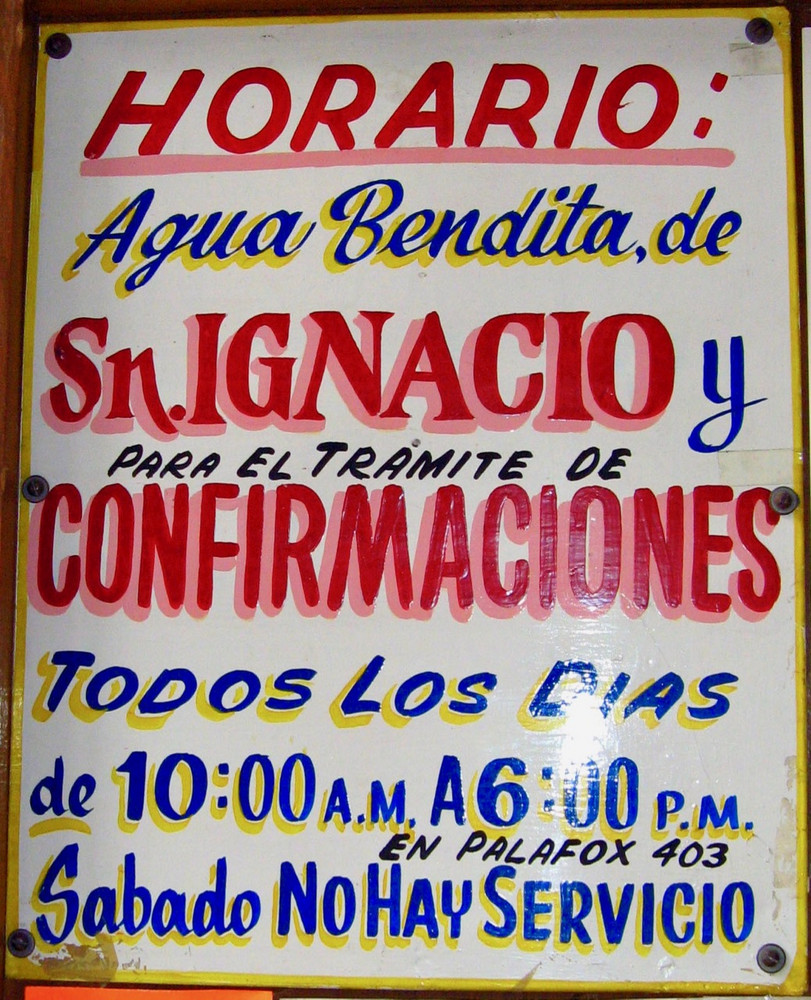 HORARIO:
Agua Bendita, de
Sn. IGNACIO y
PARA EL TRÁMITE DE
CONFIRMACIONES
TODOS LOS DIAS
de 10:00 A.M. A 6:00 P.M.
EN PALAFOX 403
Sabado NO HAY SERVICIO